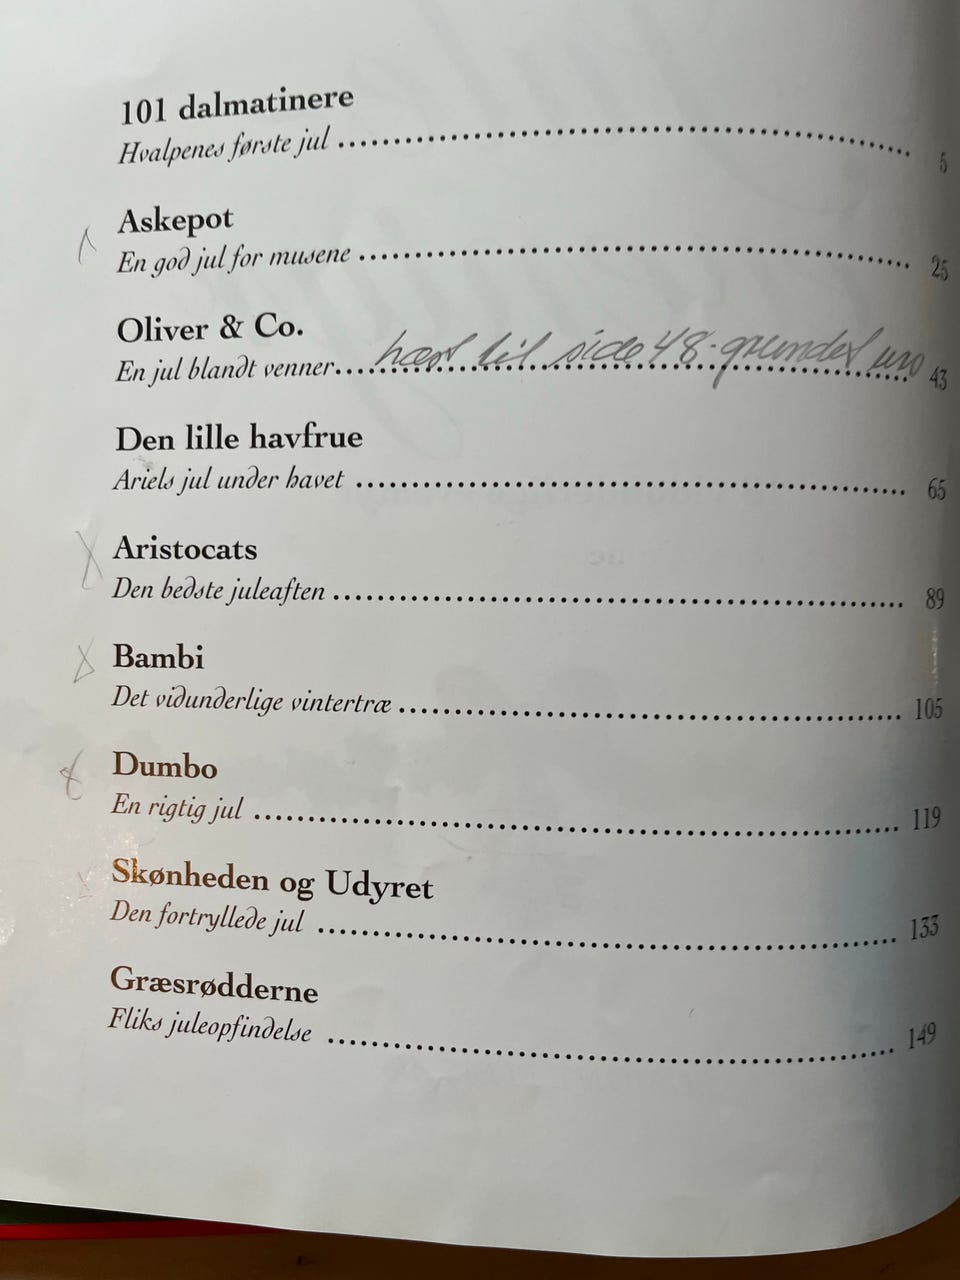 101 dalmatinere
Hvalpenes første jul 5
Askepot
En god jul for musene 25
Oliver & Co.
læst til side 48. grundet uro
En jul blandt venner 43
Den lille havfrue
Ariels jul under havet 65
Aristocats
Den bedste juleaften 89
Bambi
Det vidunderlige vintertræ 105
Dumbo
En rigtig jul 119
Skønheden og Udyret
Den fortryllede jul 133
Græsrødderne
Fliks juleopfindelse 149